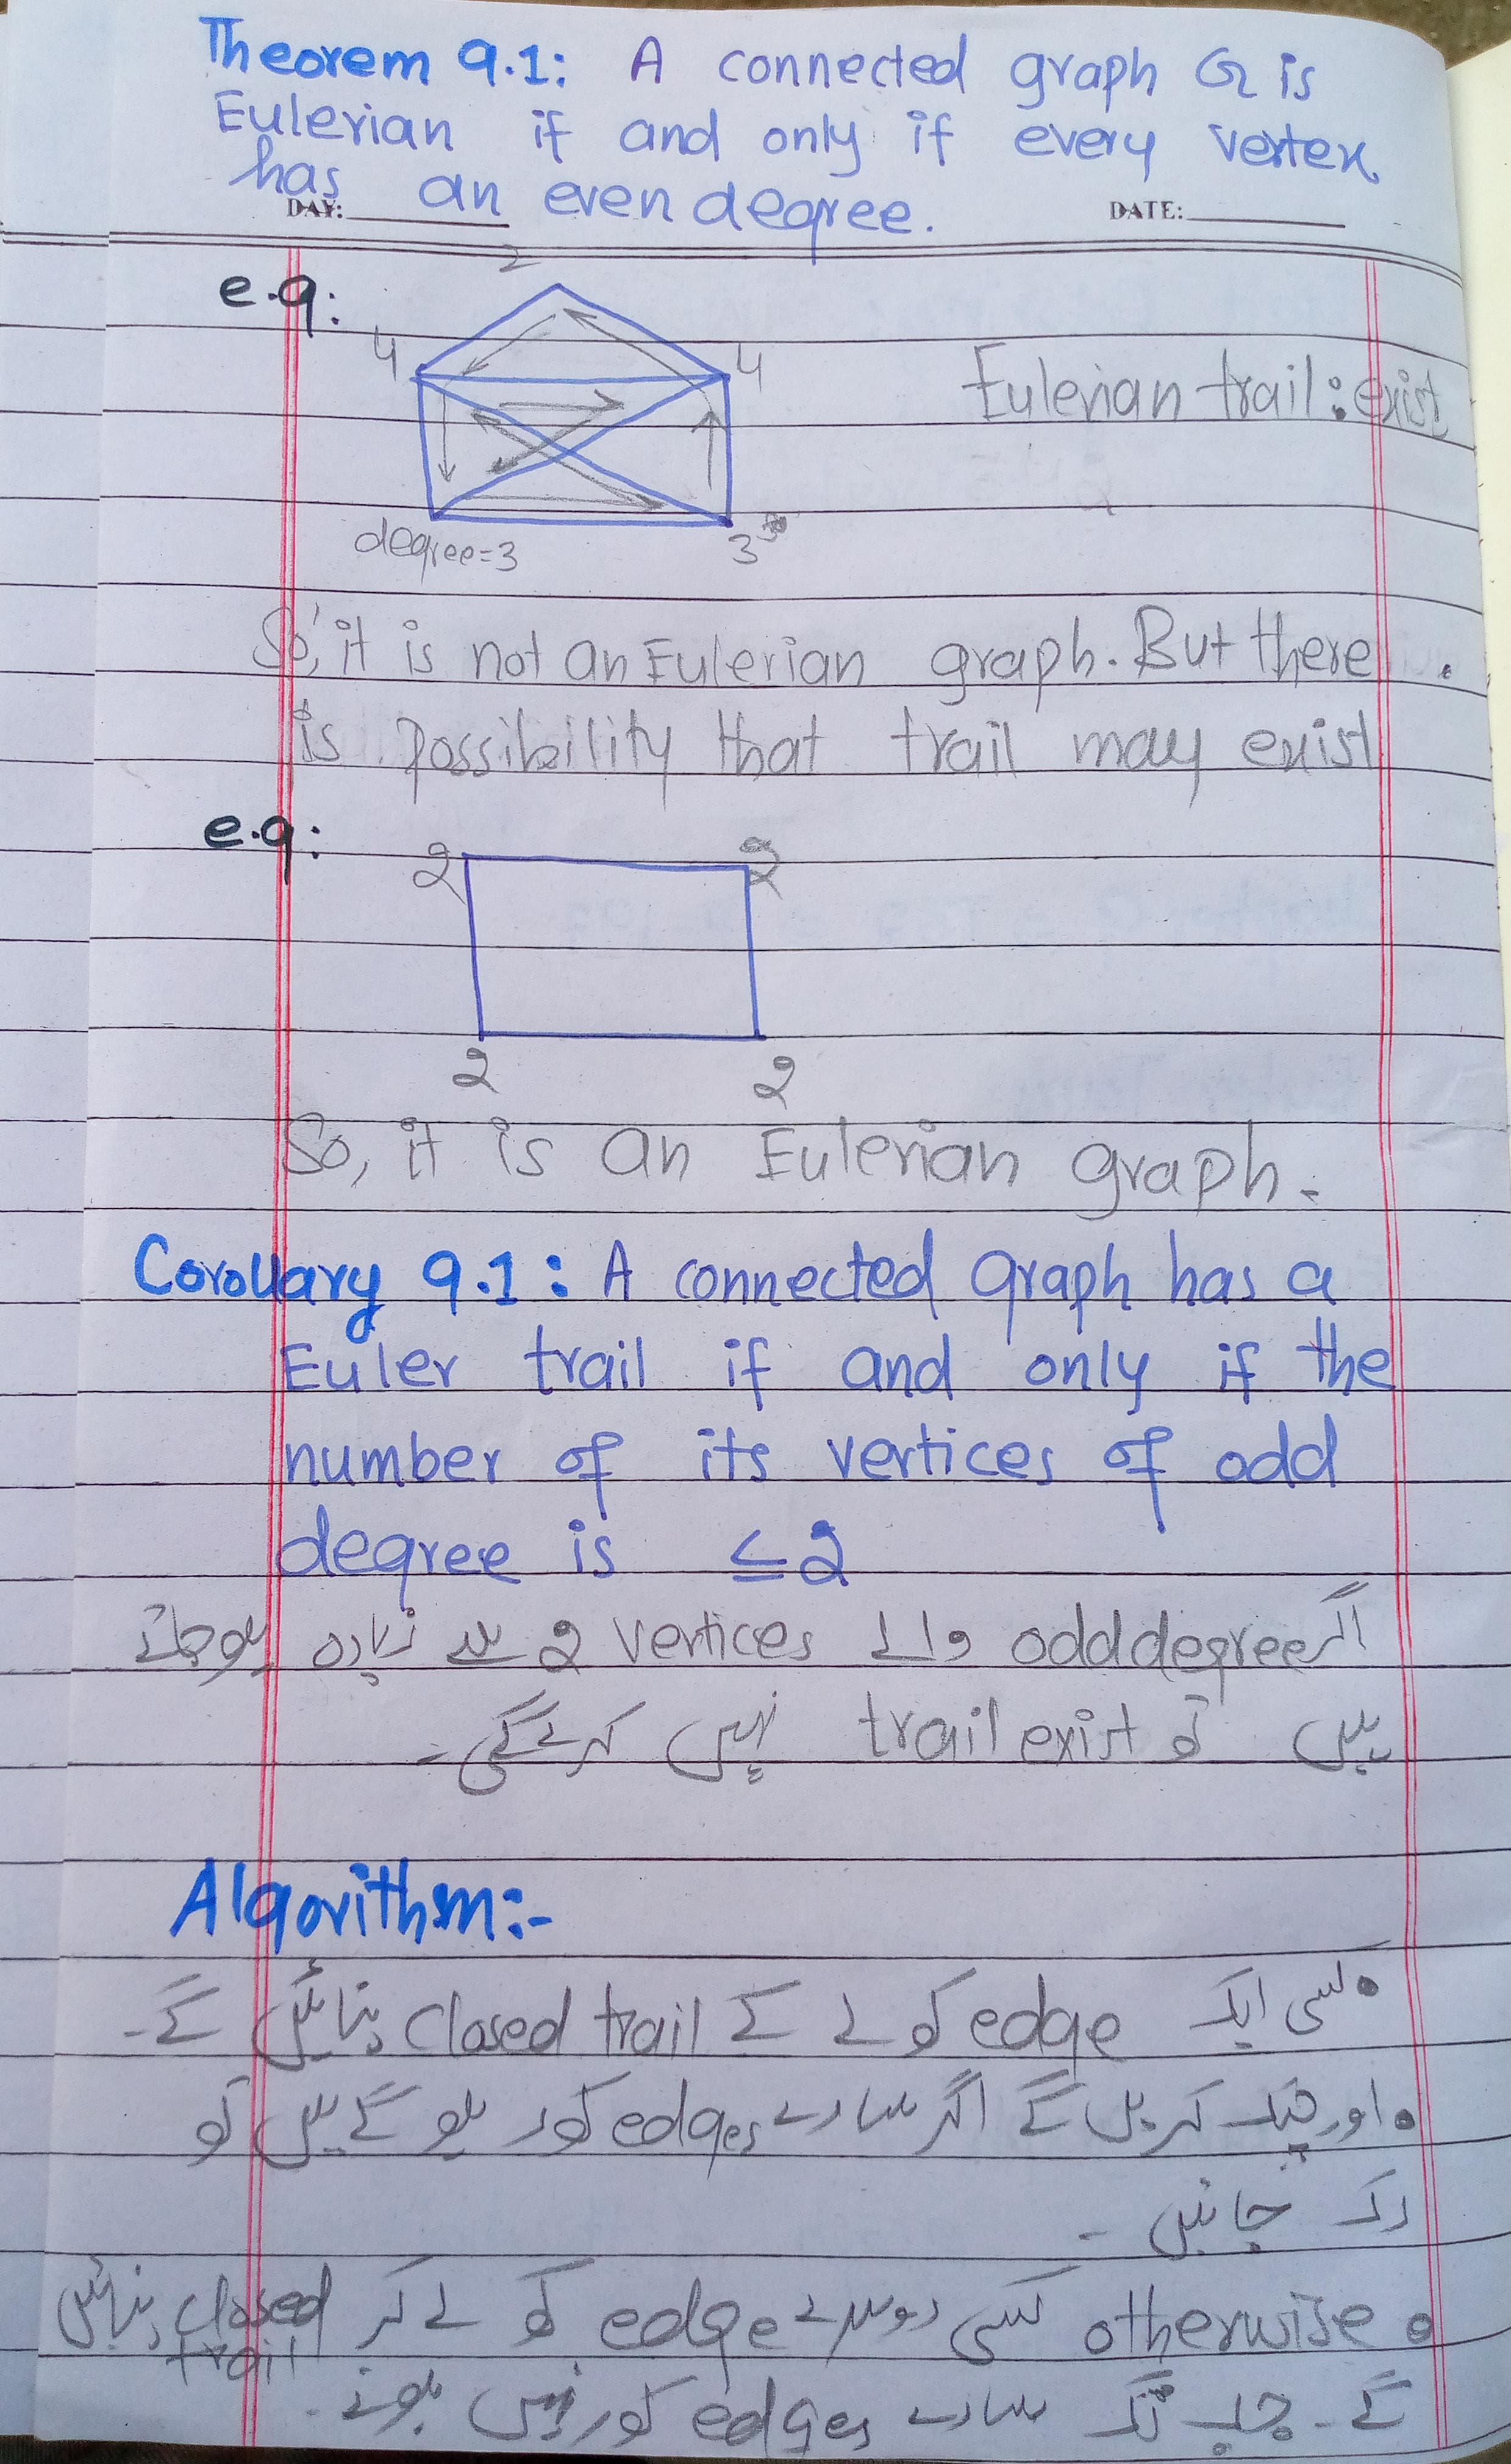 Theorem 9.1: A connected graph G is
Eulerian if and only if every vertex
has an even degree.
DAY: DATE:
e.g:
2
4 4
Eulerian trail: exist
degree=3 3
So, it is not an Eulerian graph. But there
is possibility that trail may exist
e.g:
2 2
2 2
So, it is an Eulerian graph.
Corollary 9.1: A connected graph has a
Euler trail if and only if the
number of its vertices of odd
degree is ≤2
اگر odd degree والے vertices 2 سے زیادہ ہو جاتے
ہیں تو trail exist نہیں کرے گی۔
Algorithm:-
• کسی ایک edge کو لے کے closed trail بنائیں گے۔
• اور چیک کریں گے اگر سارے edges کور ہو گے ہیں تو
رک جائیں۔
• otherwise کسی دوسرے edge کو لے کر closed trail بنائیں
گے۔ جب تک سارے edges کور نہیں ہوتے۔